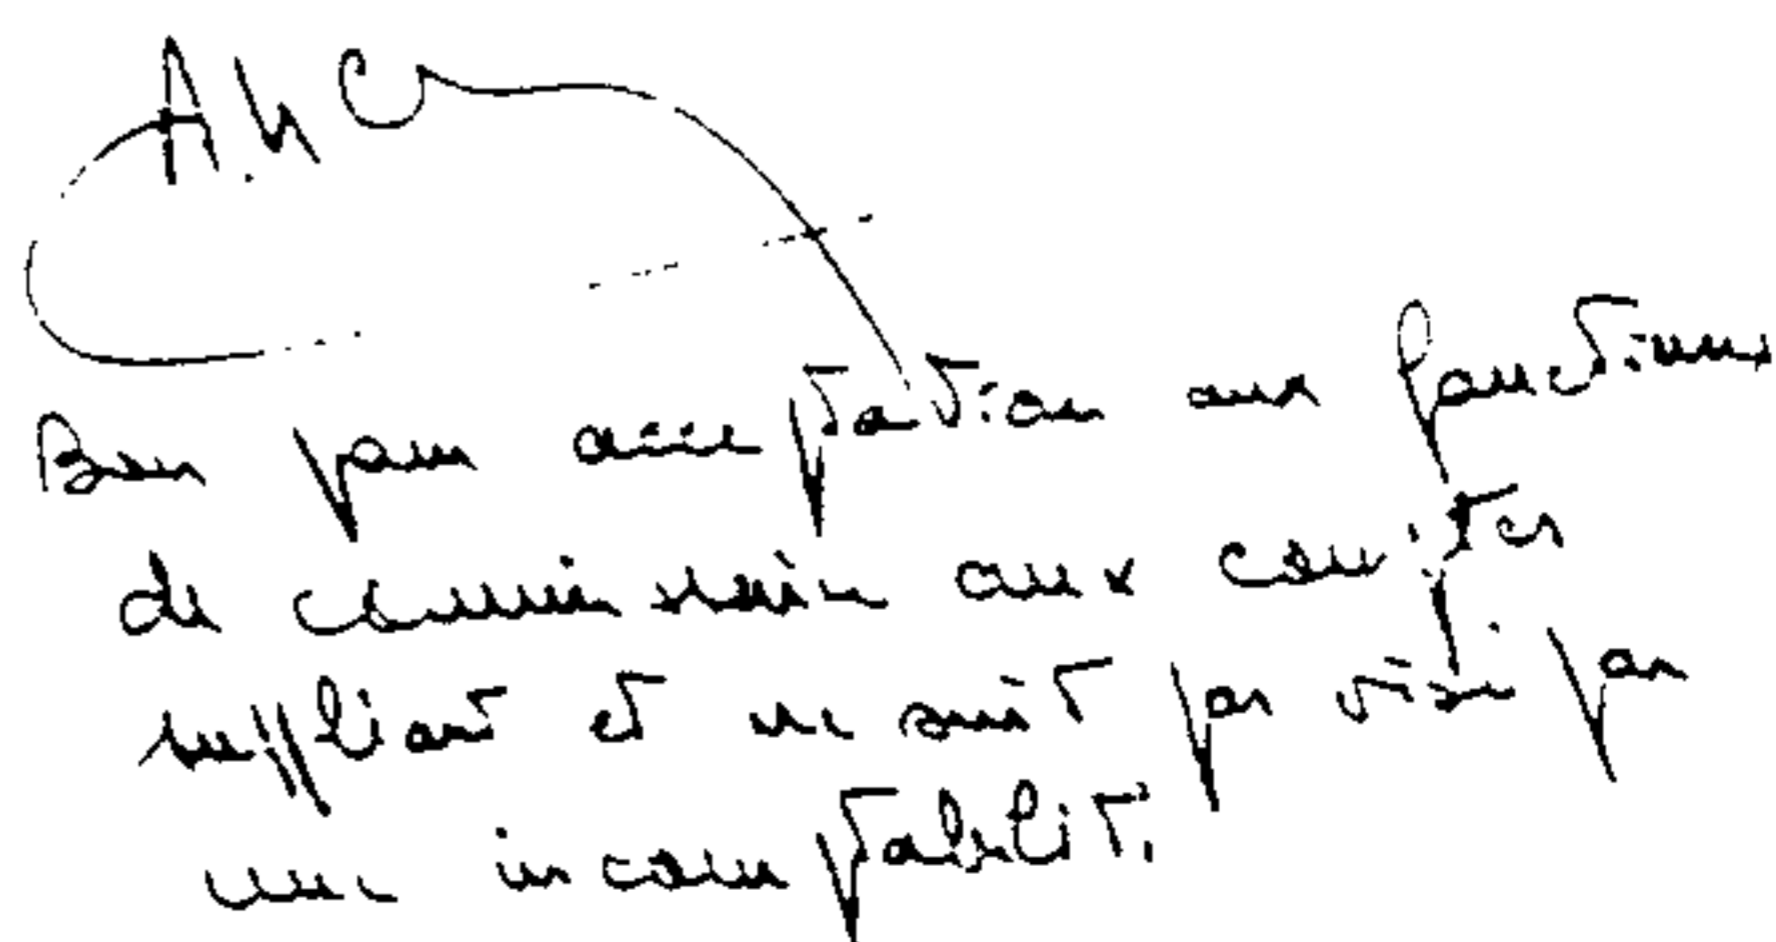 Bon pour acceptation aux fonctions
de commissaire aux comptes
suppliant et ne suit pas visé par
une incomptabilité